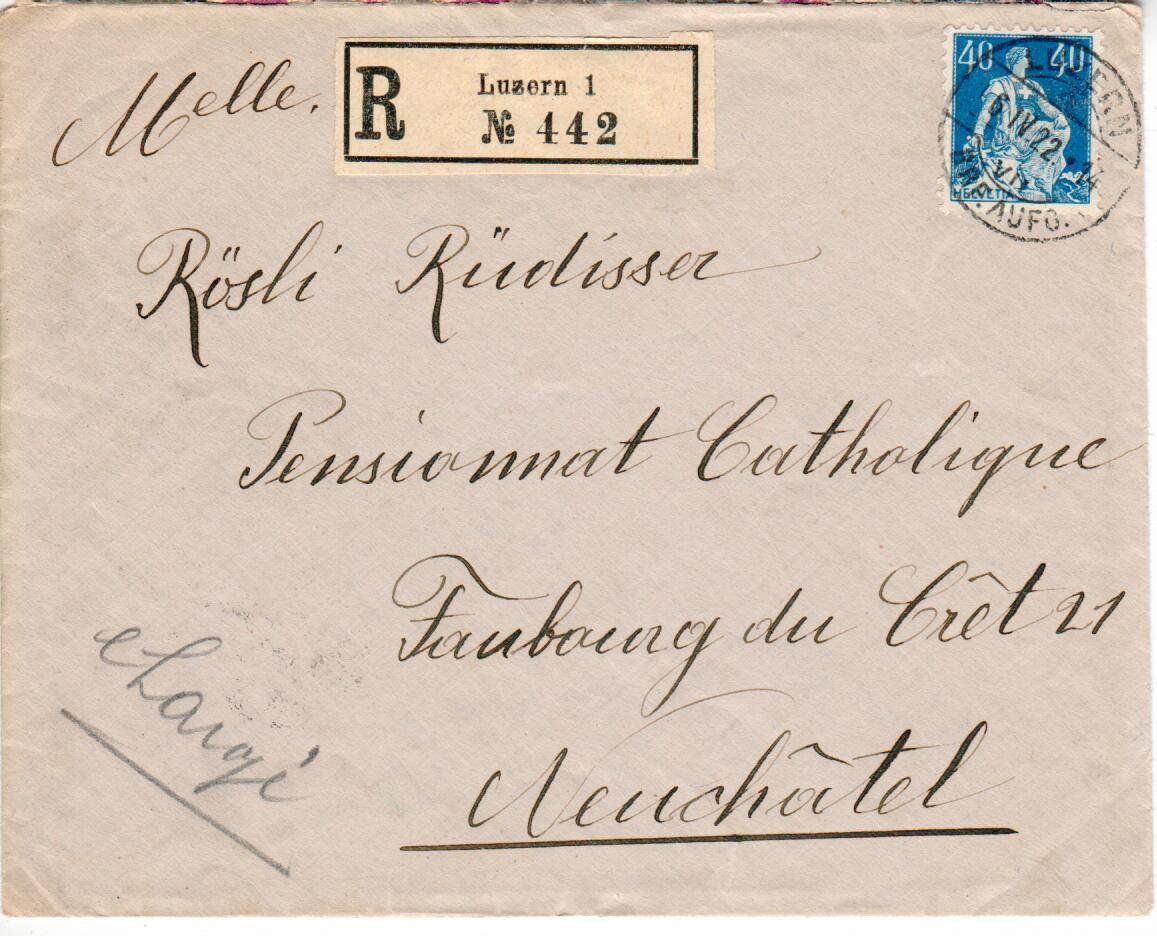 Melle.
R
Luzern 1
№ 442
40 40
HELVETIA
LUZERN
6.IV.22.-14
VII
BRP. AUFG.
Rösli Rüdisser
Pensionnat Catholique
Faubourg du Crêt 21
Neuchâtel
chargé